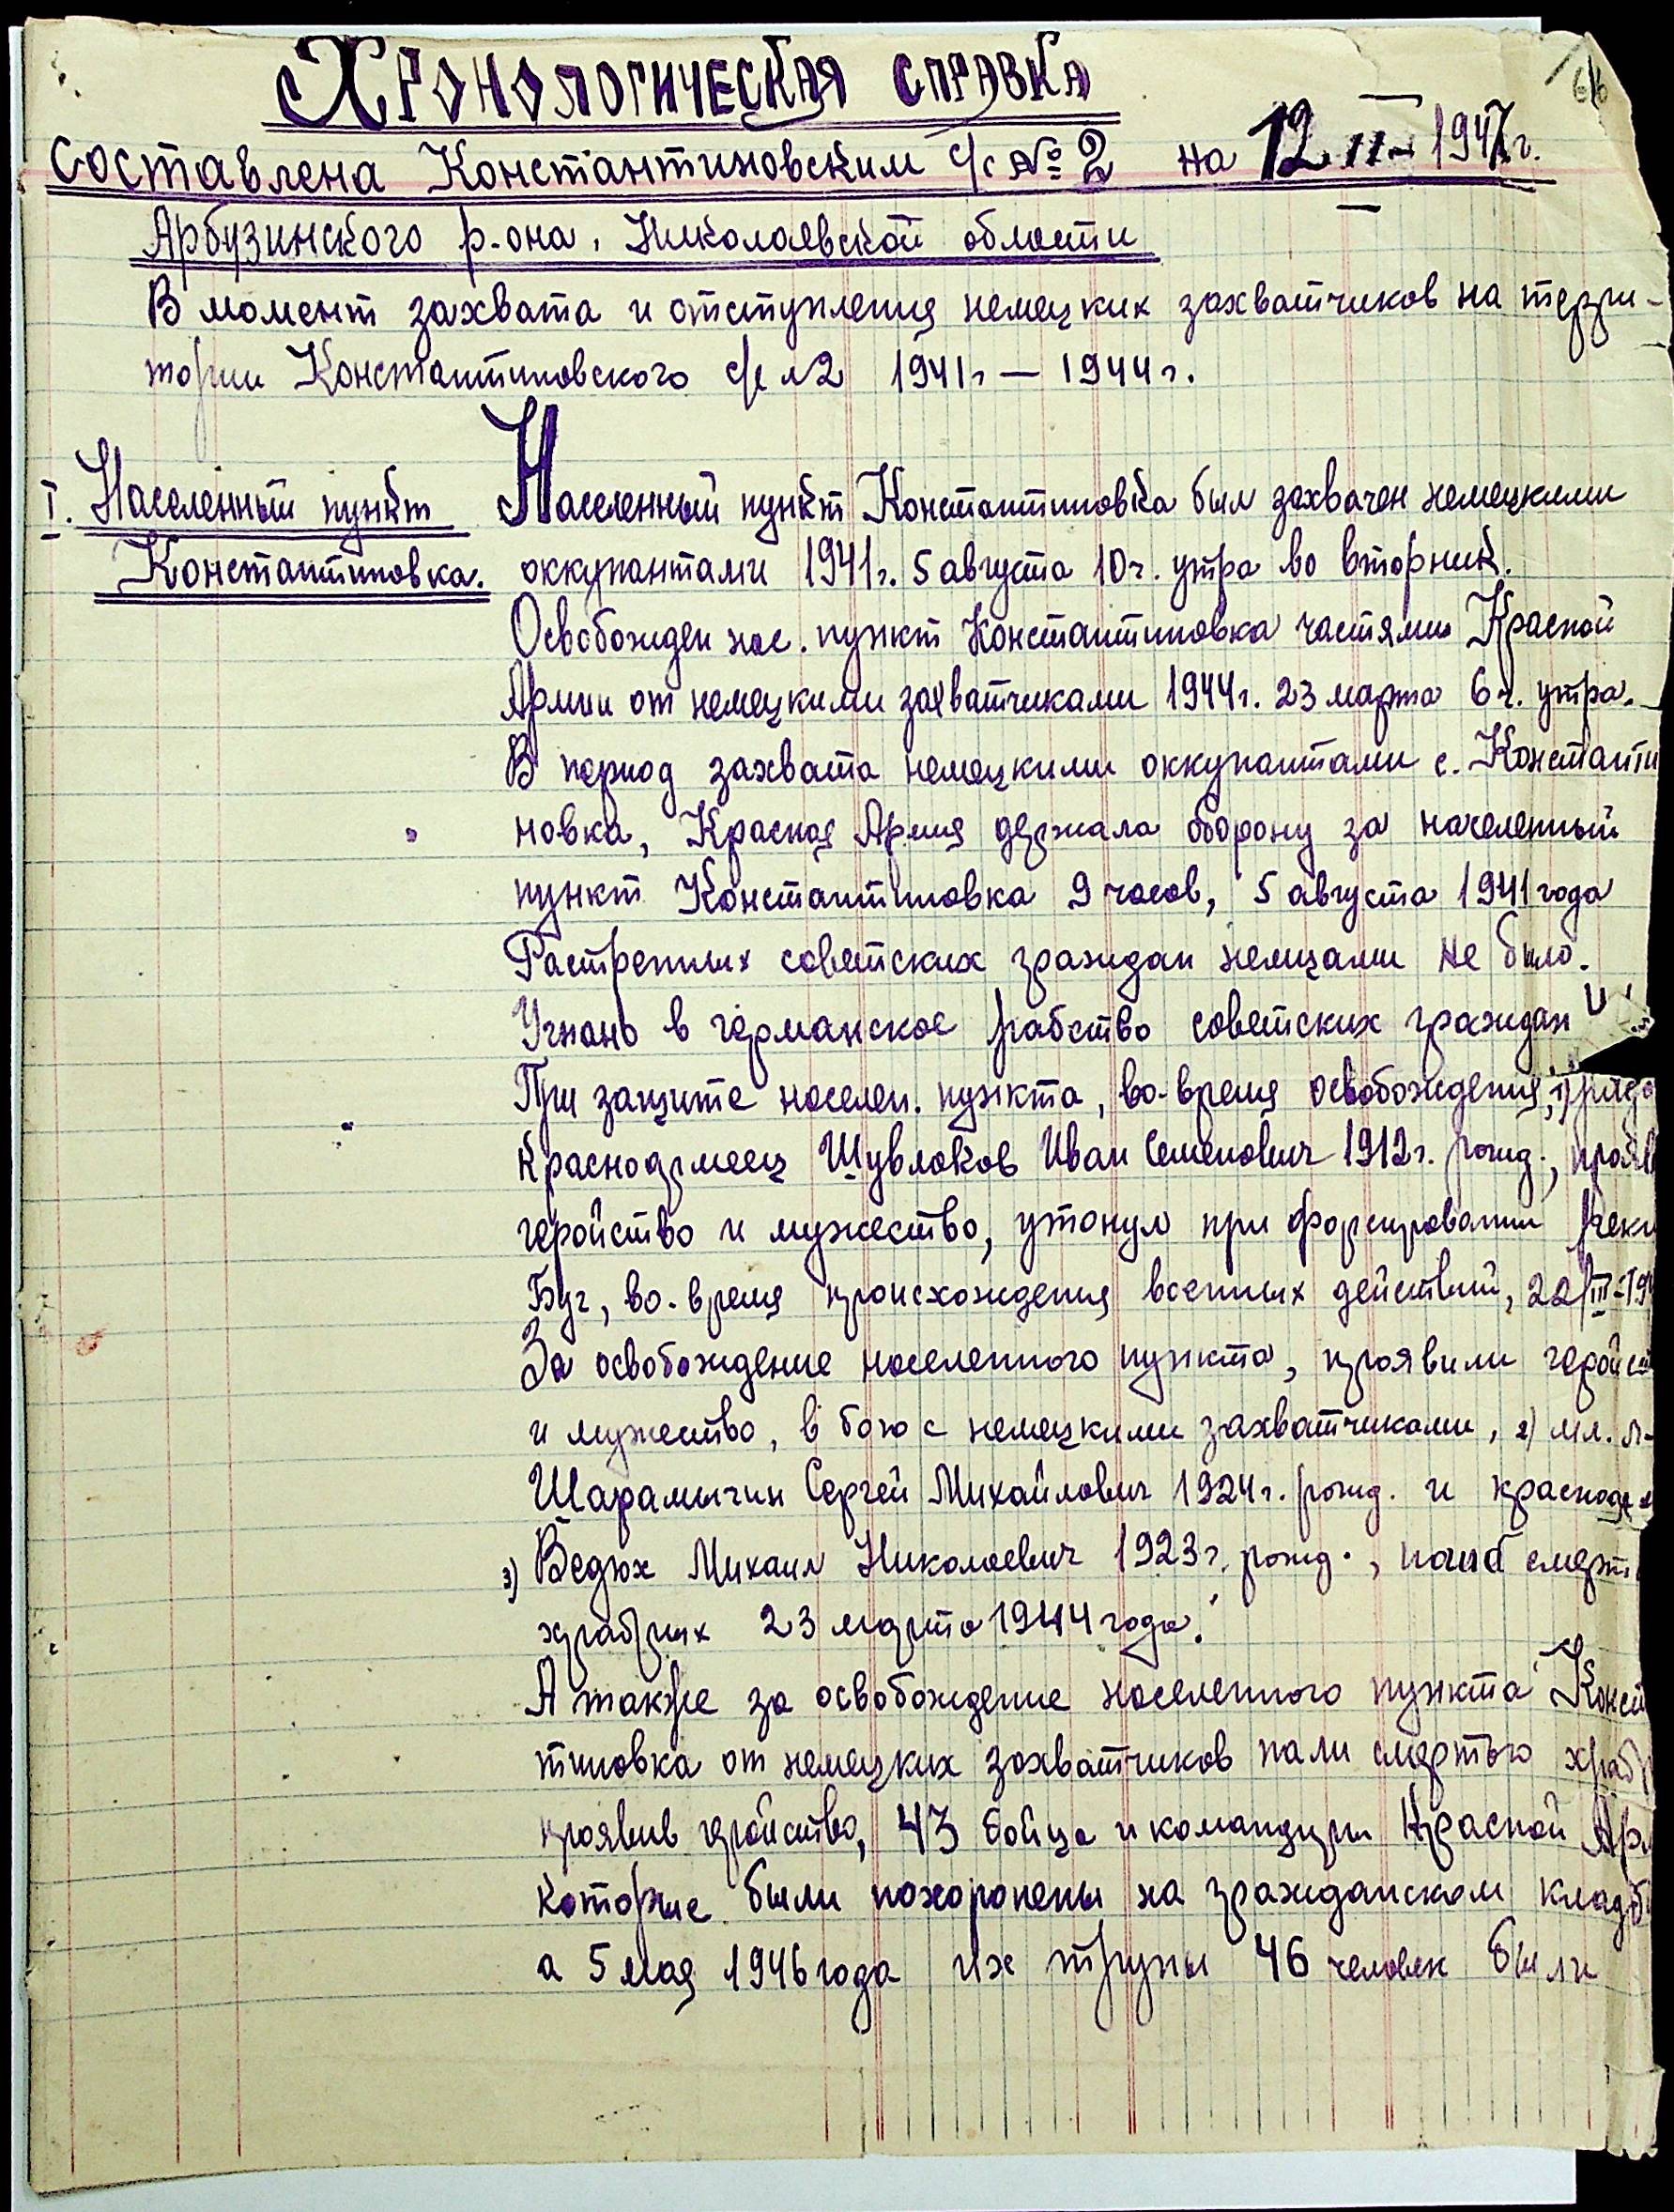 616
Хронологическая справка
Составлена Константиновским с/с № 2 на 12 II - 1947г.
Арбузинского р-она, Николаевской области
В момент захвата и отступления немецких захватчиков на терри-
тории Константиновского с/с №2 1941г — 1944г.
I. Населенный пункт
Константиновка.
Населенный пункт Константиновка был захвачен немецкими
оккупантами 1941г. 5 августа 10ч. утра во вторник.
Освобожден нас. пункт Константиновка частями Красной
Армии от немецкими захватчиками 1944г. 23 марта 6ч. утра.
В период захвата немецкими оккупантами с. Константи
новка, Красная Армия держала оборону за населенный
пункт Константиновка 9 часов, 5 августа 1941 года
Растренных советских граждан немцами не было.
Угнано в германское рабство советских граждан
При защите населен. пункта, во-время освобождения, 1) рядо
красноармеец Шувлоков Иван Семенович 1912г. рожд., прояв
геройство и мужество, утонул при форсировании реки
Буг, во-время происхождения военных действий, 22/III-194
За освобождение населенного пункта, проявили геройст
и мужество, в бою с немецкими захватчиками, 2) мл. л-
Шарамыгин Сергей Михайлович 1924г. рожд. и красноарм
3) Ведюх Михаил Николаевич 1923г. рожд., смерть
храбрых 23 марта 1944 года.
А также за освобождение населенного пункта Конст
тиновка от немецких захватчиков пали смертью храбр
проявив геройство, 43 бойца и командиры Красной Арм
которые были похоронены на гражданском кладб
а 5 мая 1946 года их трупы 46 человек были